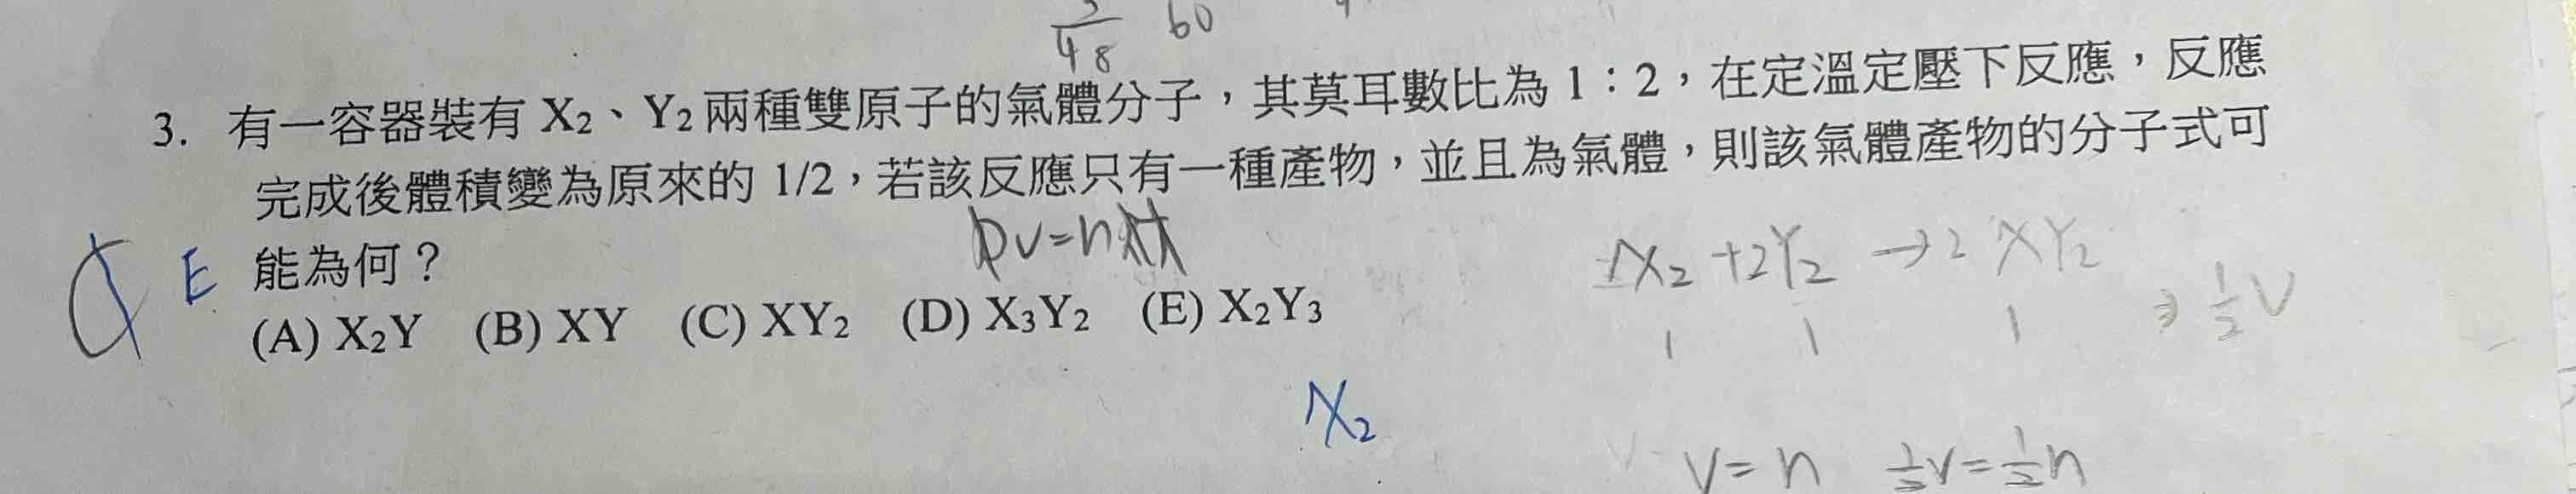 48 60
3. 有一容器裝有 X₂、Y₂ 兩種雙原子的氣體分子，其莫耳數比為 1：2，在定溫定壓下反應，反應
完成後體積變為原來的 1/2，若該反應只有一種產物，並且為氣體，則該氣體產物的分子式可
能為何？
E
PV=nRT
1X₂ + 2Y₂ → 2 XY₂
1 1 1 ⇒ ½V
(A) X₂Y (B) XY (C) XY₂ (D) X₃Y₂ (E) X₂Y₃
X₂
V = n ½V = ½n